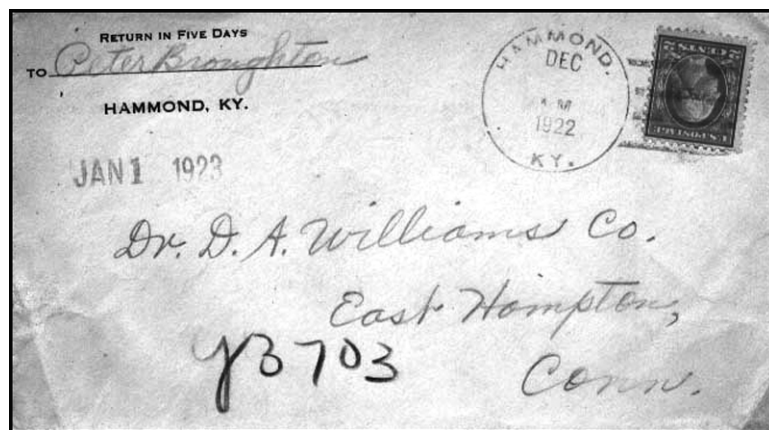 RETURN IN FIVE DAYS
TO Peter Broughton
HAMMOND, KY.
HAMMOND.
DEC
A M
1922
KY.
2 CENTS 2
U.S. POSTAGE
JAN 1 1923
Dr. D. A. Williams Co.
East Hampton,
Conn.
y3703